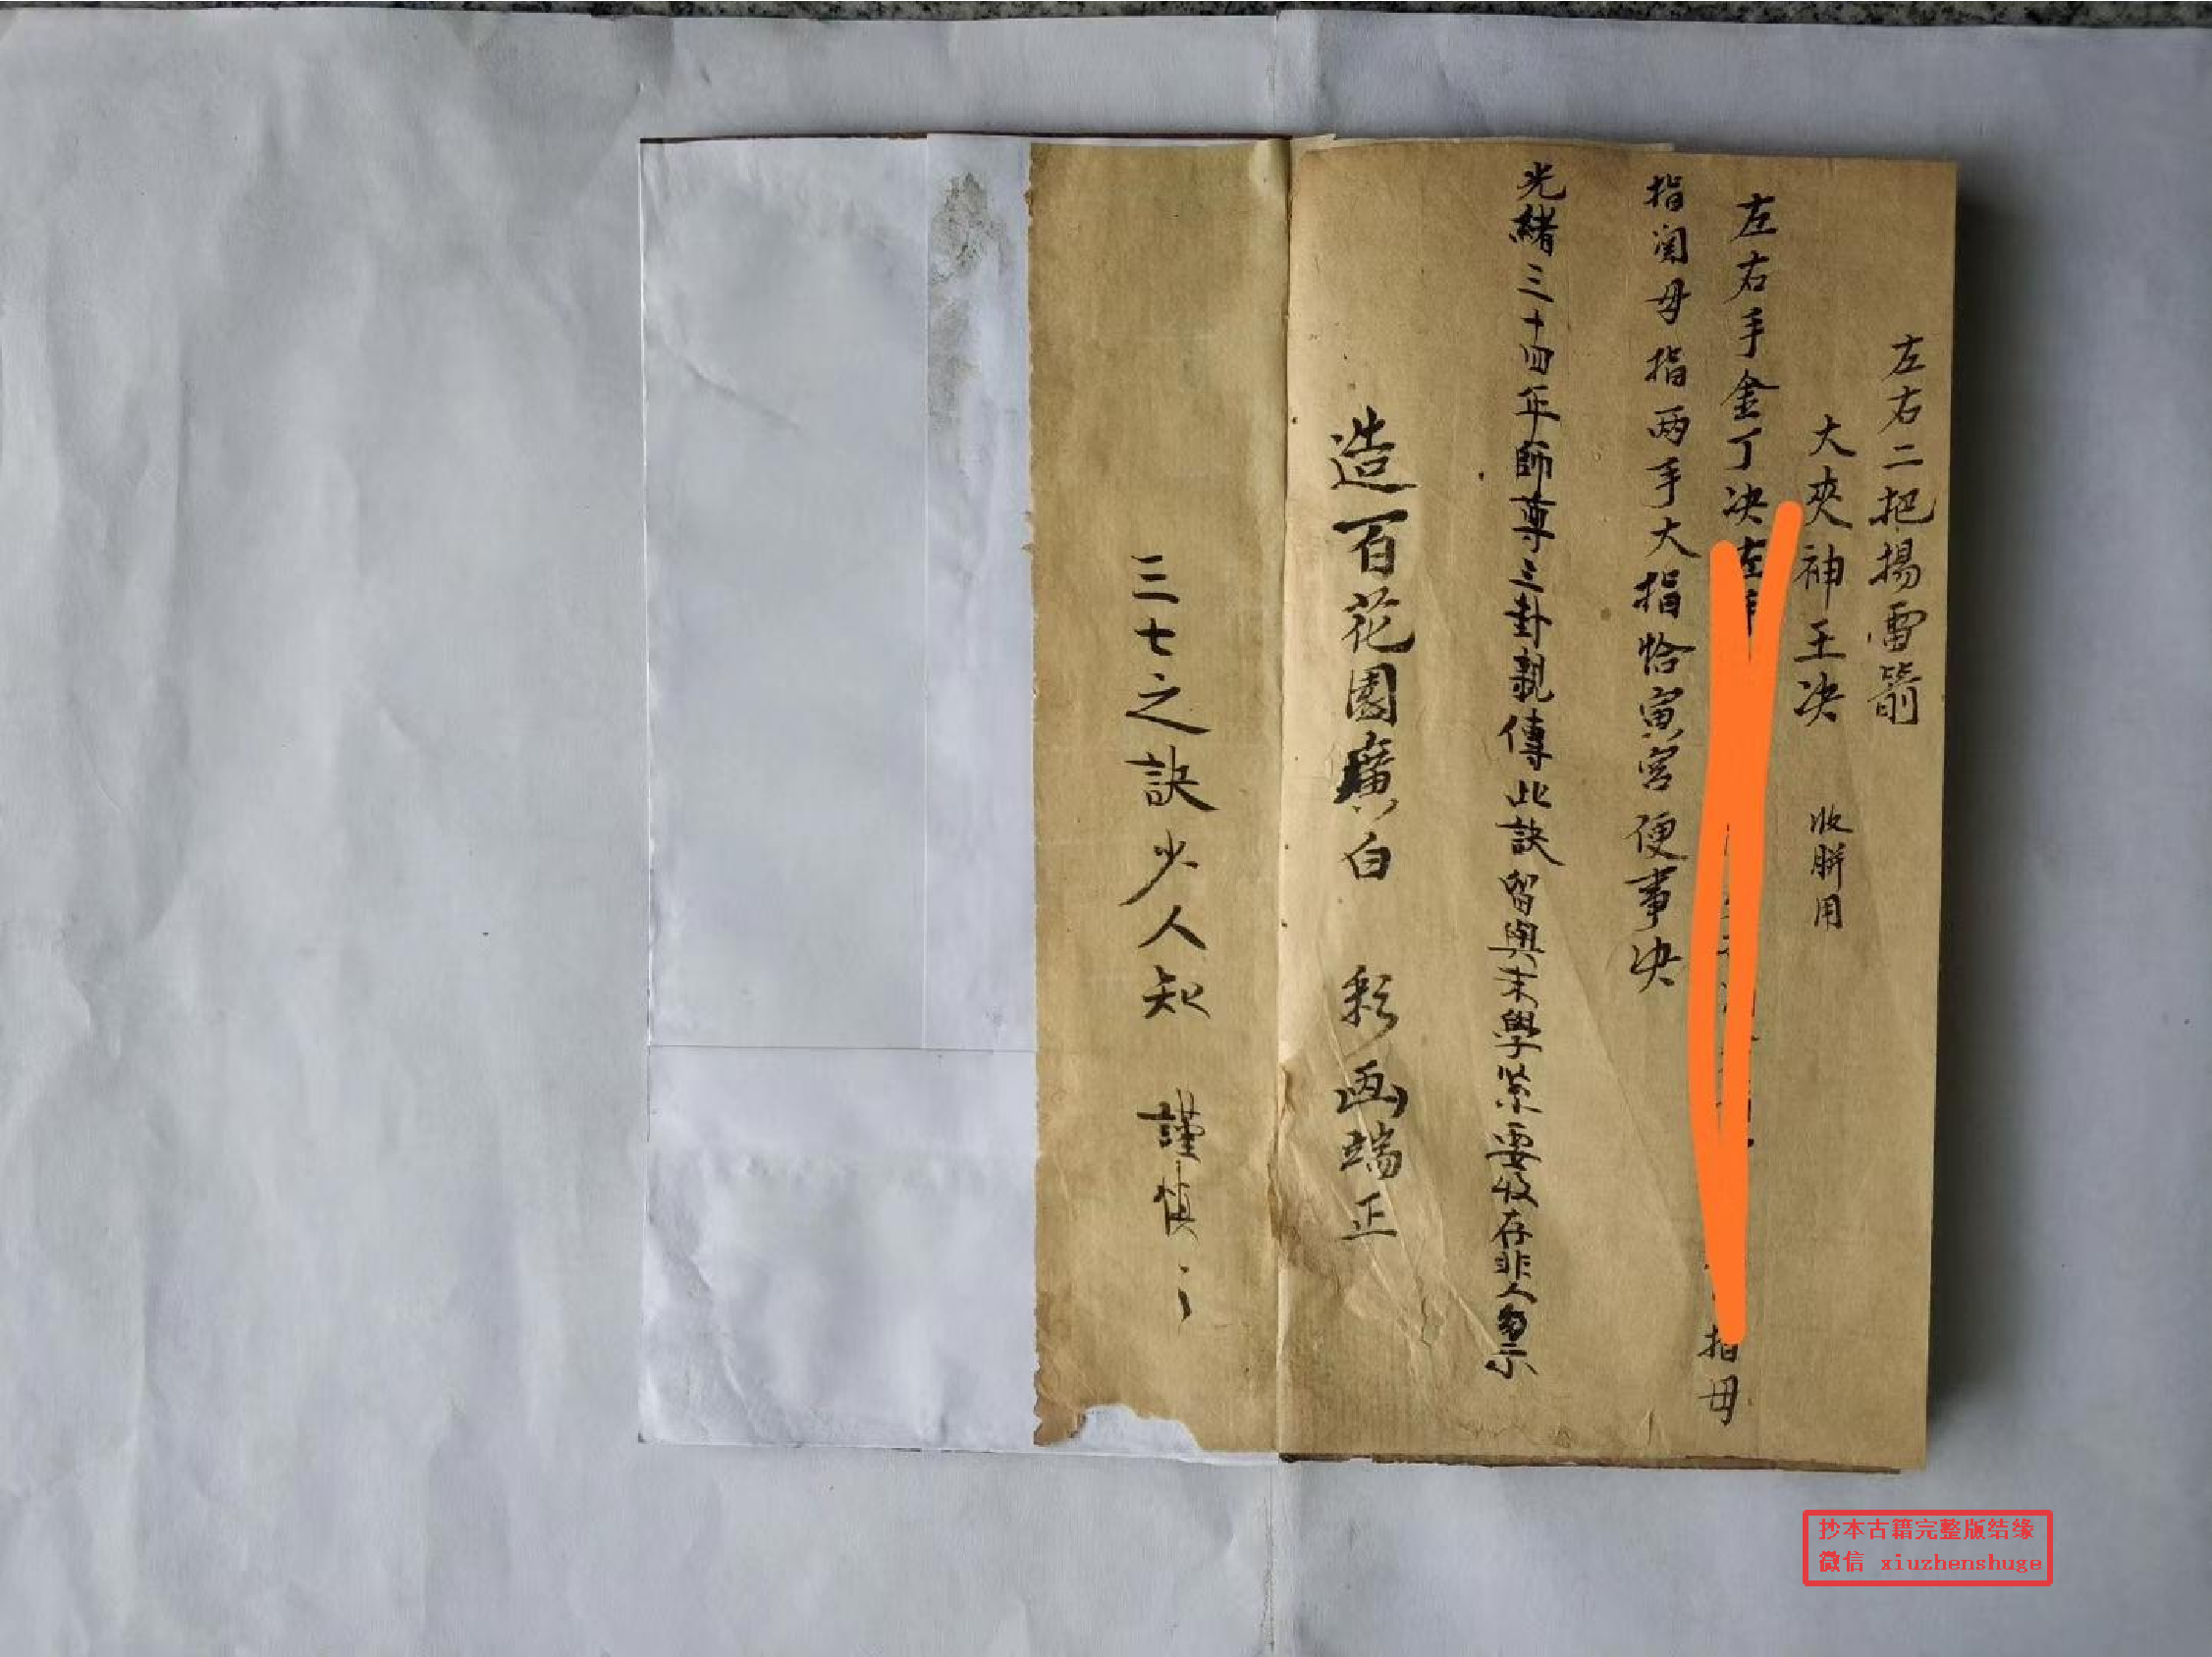 左右二把揚雷箭
大夾神王决 收胼用
左右手金丁决左 指毋
指闰毋指两手大指恰寅宮便事决
光緒三十四年師尊三卦親傳此訣留與末學紧要收存非人勿示
造百花園廣白 彩画端正
三七之訣少人知 謹慎〻
抄本古籍完整版结缘
微信 xiuzhenshuge